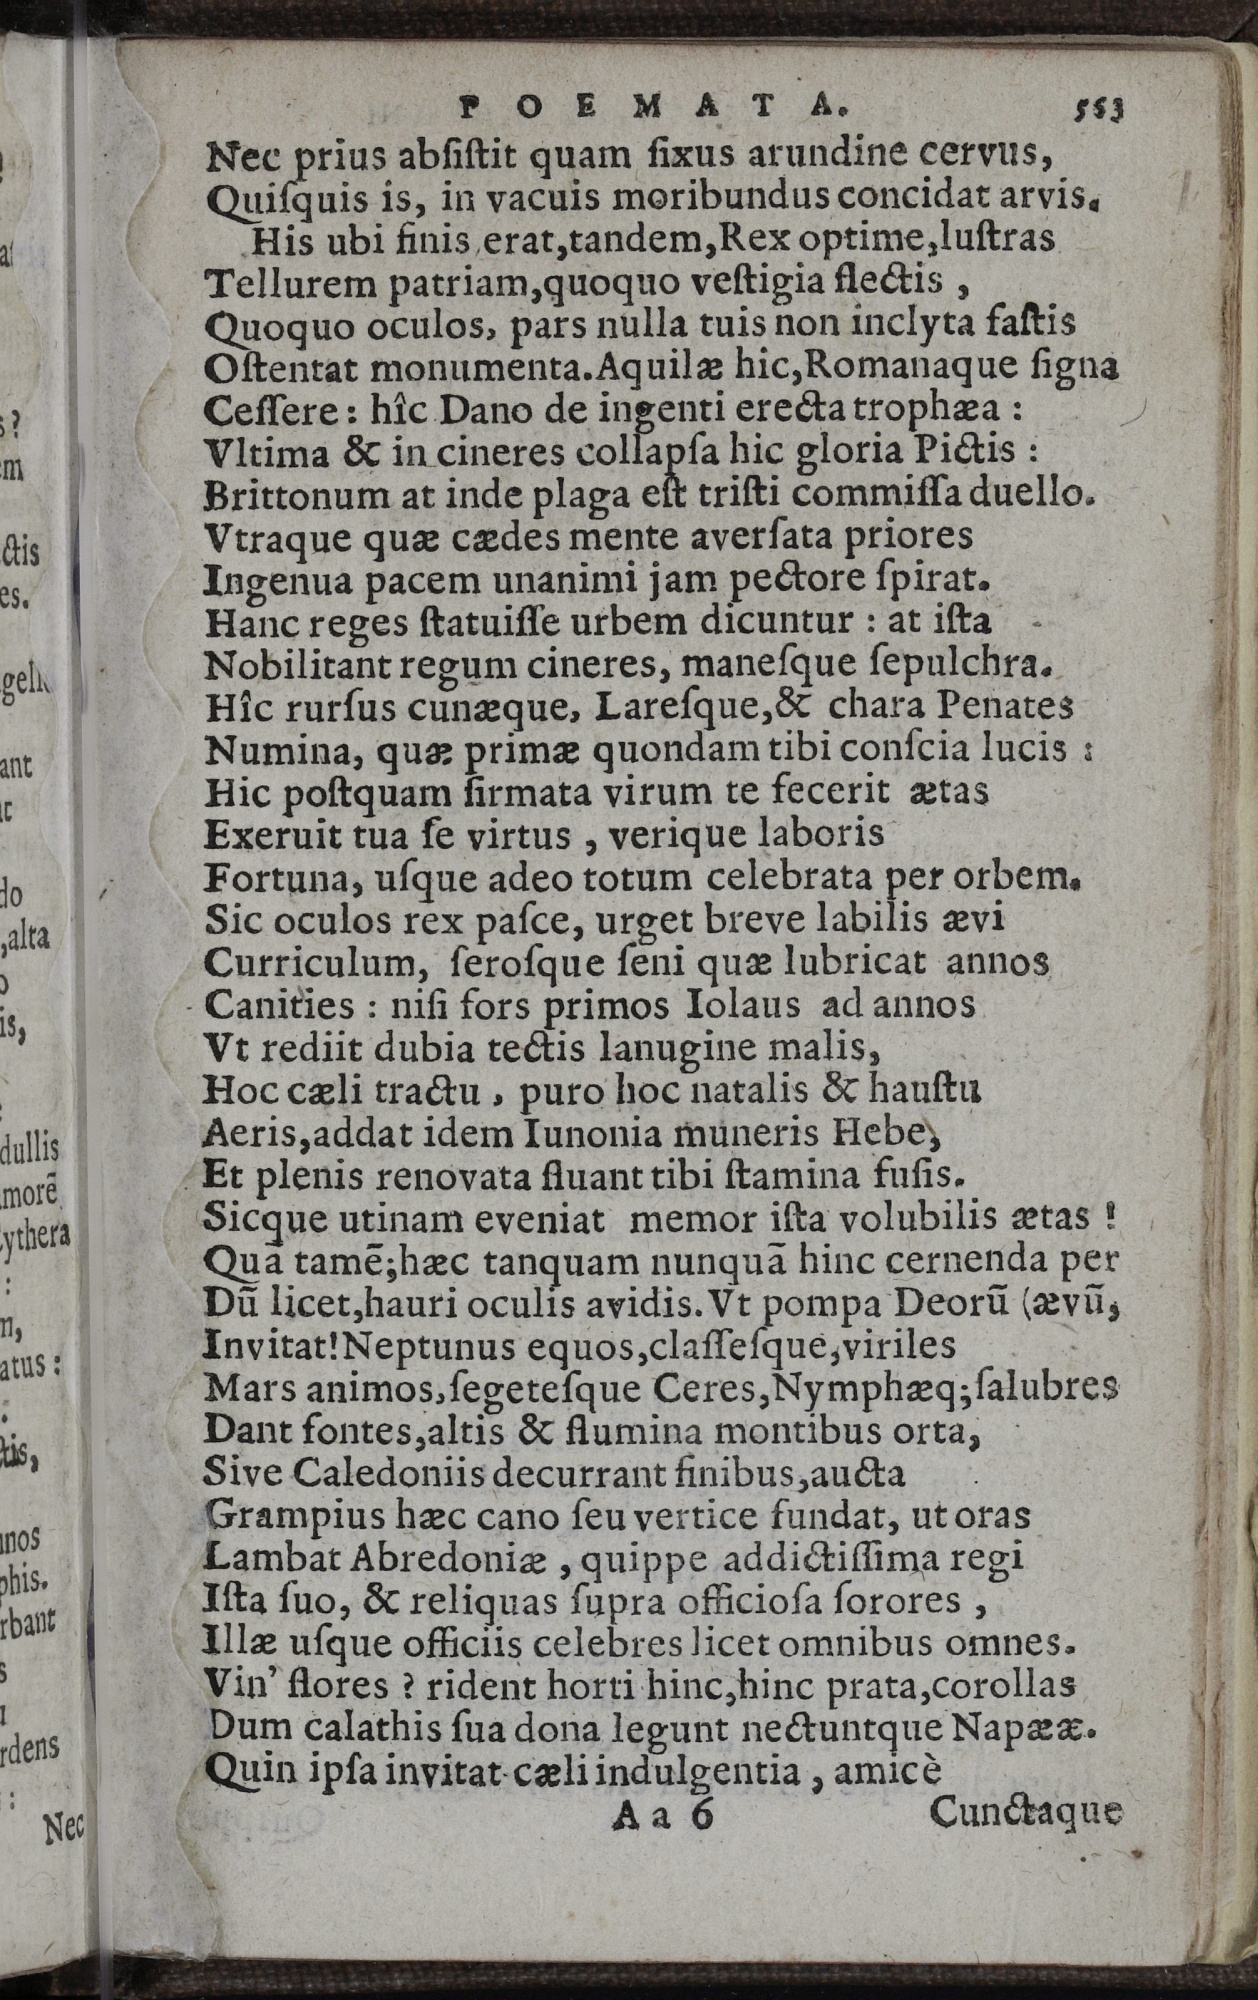 POEMATA. 553
Nec prius absistit quam fixus arundine cervus,
Quiſquis is, in vacuis moribundus concidat arvis.
His ubi finis erat,tandem,Rex optime,luſtras
Tellurem patriam,quoquo veſtigia flectis ,
Quoquo oculos, pars nulla tuis non inclyta faſtis
Oſtentat monumenta.Aquilæ hic,Romanaque ſigna
Ceſſere : hîc Dano de ingenti erecta trophæa :
Vltima & in cineres collapſa hic gloria Pictis :
Brittonum at inde plaga eſt triſti commiſſa duello.
Vtraque quæ cædes mente averſata priores
Ingenua pacem unanimi jam pectore ſpirat.
Hanc reges ſtatuiſſe urbem dicuntur : at iſta
Nobilitant regum cineres, maneſque ſepulchra.
Hîc rurſus cunæque, Lareſque,& chara Penates
Numina, quæ primæ quondam tibi conſcia lucis :
Hic poſtquam firmata virum te fecerit ætas
Exeruit tua ſe virtus , verique laboris
Fortuna, uſque adeo totum celebrata per orbem.
Sic oculos rex paſce, urget breve labilis ævi
Curriculum, ſeroſque ſeni quæ lubricat annos
Canities : niſi fors primos Iolaus ad annos
Vt rediit dubia tectis lanugine malis,
Hoc cæli tractu , puro hoc natalis & hauſtu
Aeris,addat idem Iunonia muneris Hebe,
Et plenis renovata fluant tibi ſtamina fuſis.
Sicque utinam eveniat memor iſta volubilis ætas !
Quā tamē;hæc tanquam nunquā hinc cernenda per
Dū licet,hauri oculis avidis.Vt pompa Deorū (ævū,
Invitat!Neptunus equos,claſſeſque,viriles
Mars animos,ſegeteſque Ceres,Nymphæq;ſalubres
Dant fontes,altis & flumina montibus orta,
Sive Caledoniis decurrant finibus,aucta
Grampius hæc cano ſeu vertice fundat, ut oras
Lambat Abredoniæ , quippe addictiſſima regi
Iſta ſuo, & reliquas ſupra officioſa ſorores ,
Illæ uſque officiis celebres licet omnibus omnes.
Vin' flores ? rident horti hinc,hinc prata,corollas
Dum calathis ſua dona legunt nectuntque Napææ.
Quin ipſa invitat cæli indulgentia , amicè
Aa 6 Cunctaque